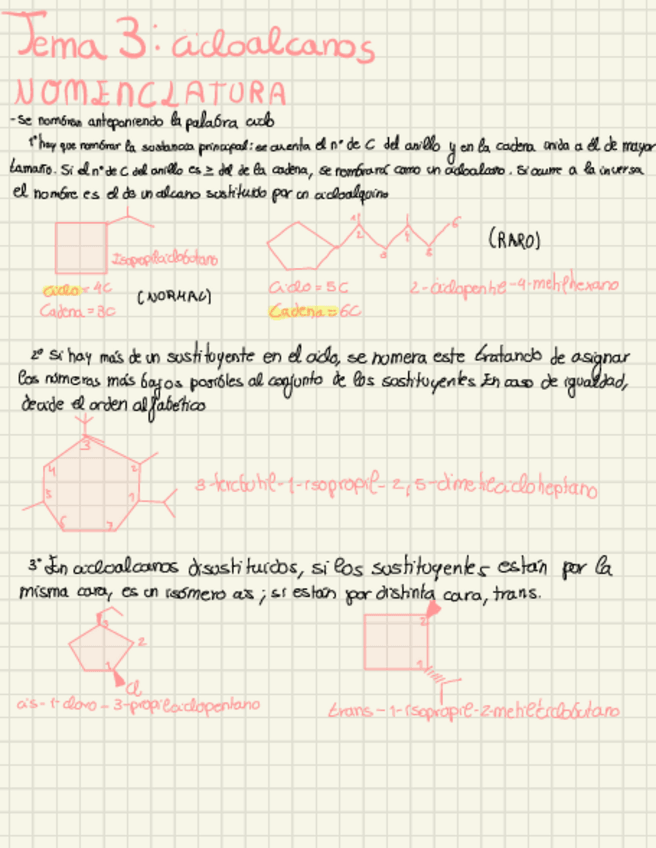 Tema 3: cicloalcanos
NOMENCLATURA
-Se nombran anteponiendo la palabra ciclo
1º hay que nombrar la sustancia principal: se cuenta el nº de C del anillo y en la cadena unida a él de mayor
tamaño. Si el nº de C del anillo es ≥ del de la cadena, se nombrará como un cicloalcano. Si ocurre a la inversa
el nombre es el de un alcano sustituido por un cicloalquino
Isopropilciclobutano
ciclo = 4C
Cadena = 3C
(NORMAL)
1
2
3
4
5
6
(RARO)
Ciclo = 5C
Cadena = 6C
2-ciclopentil-4-metilhexano
2º Si hay más de un sustituyente en el ciclo, se nomera este tratando de asignar
los números más bajos posibles al conjunto de los sustituyentes. En caso de igualdad,
decide el orden alfabético
3
4
2
5
1
6
7
3-tercbutil-1-isopropil-2,5-dimetilcicloheptano
3º En cicloalcanos disustituidos, si los sustituyentes están por la
misma cara, es un isómero cis; si están por distinta cara, trans.
3
2
1
Cl
cis-1-cloro-3-propilciclopentano
2
1
trans-1-isopropil-2-metilciclobutano